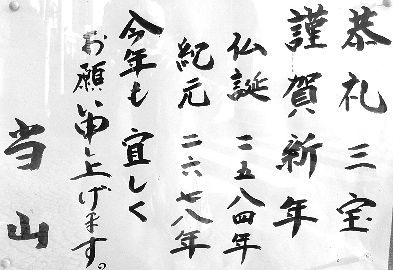 恭礼三宝
謹賀新年
仏誕二五八四年
紀元二六七八年
今年も宜しく
お願い申し上げます。
当山